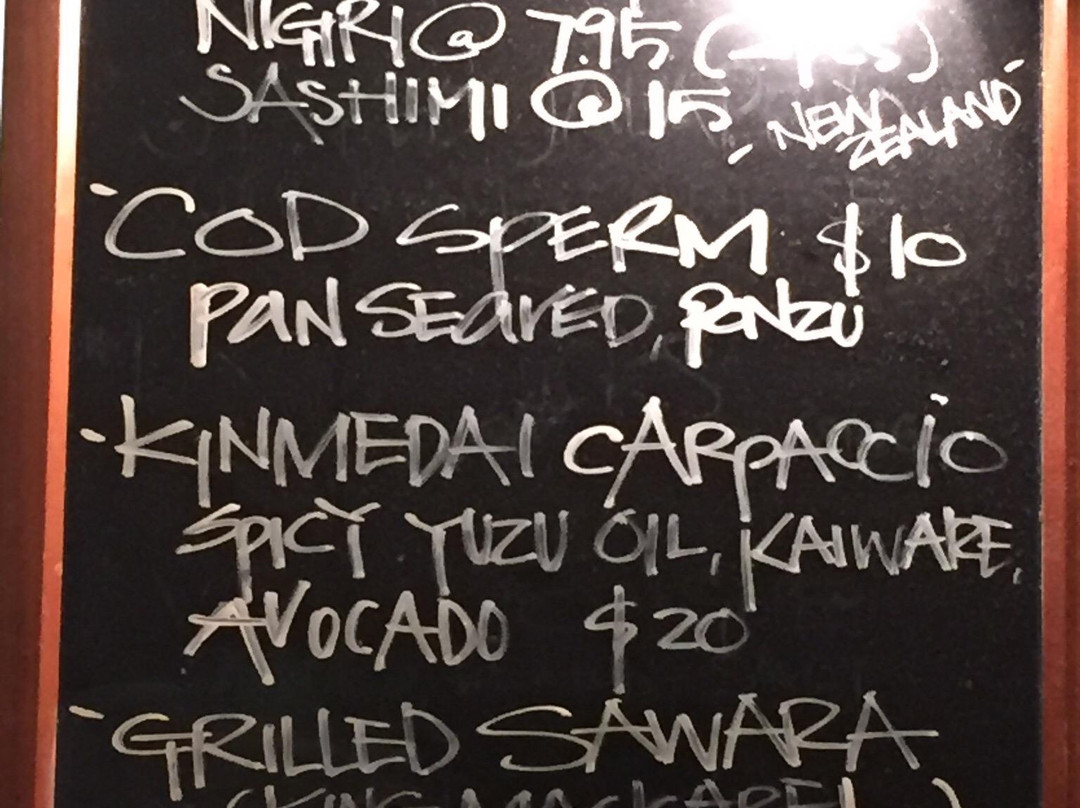 NIGIRI @ 7.95 (2pcs)
SASHIMI @ 15 - NEW ZEALAND -
- COD SPERM $10
PAN SEARED, PONZU
- KINMEDAI CARPACCIO
SPICY YUZU OIL, KAIWARE,
AVOCADO $20
- GRILLED SAWARA
(KING MACKAREL)